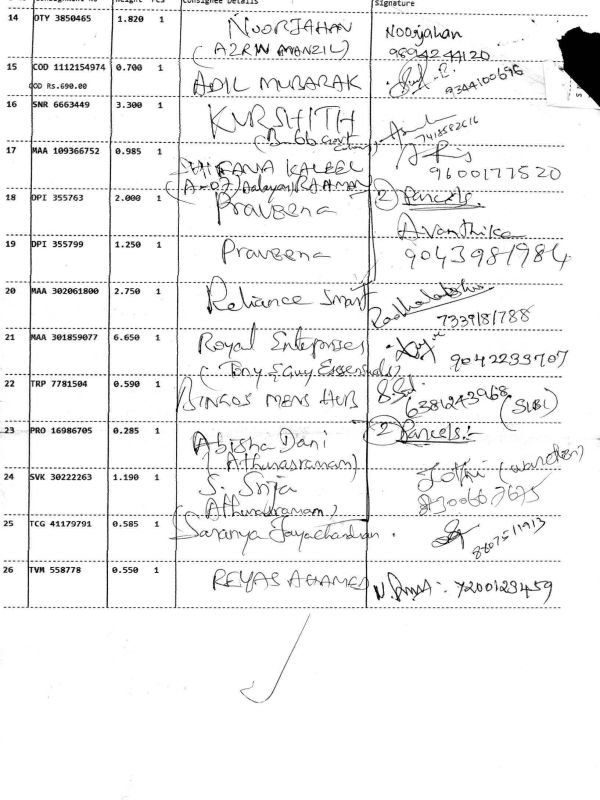 Consignee Details Signature
14 OTY 3850465 1.820 1 NOORJAHAN Noorjahan
(AZRIN MANZIL) 9894244120
15 COD 1112154974 0.700 1 ADIL MUBARAK
COD Rs.690.00 9344100696
16 SNR 6663449 3.300 1 KURSHITH
7418582616
17 MAA 109366752 0.985 1 KALEEL
9600177520
18 DPI 355763 2.000 1 Praveena 2 Parcels.
Avanthika
19 DPI 355799 1.250 1 Praveena 9043981984
20 MAA 302061800 2.750 1 Reliance Smart
7339181788
21 MAA 301859077 6.650 1 Royal Enterprises
(Tony & Guy Essensuals) 9042233707
22 TRP 7781504 0.590 1 BINGOS MENS HUB 6381243968 (SIBI)
23 PRO 16986705 0.285 1 Abisha Dani 2 Parcels:-
(Athurasramam)
24 SVK 30222263 1.190 1 S. Srija Jothi (warden)
(Athurasramam)
25 TCG 41179791 0.585 1 Saranya Jayachandran.
26 TVM 558778 0.550 1 REYAS AHAMED 7200123459